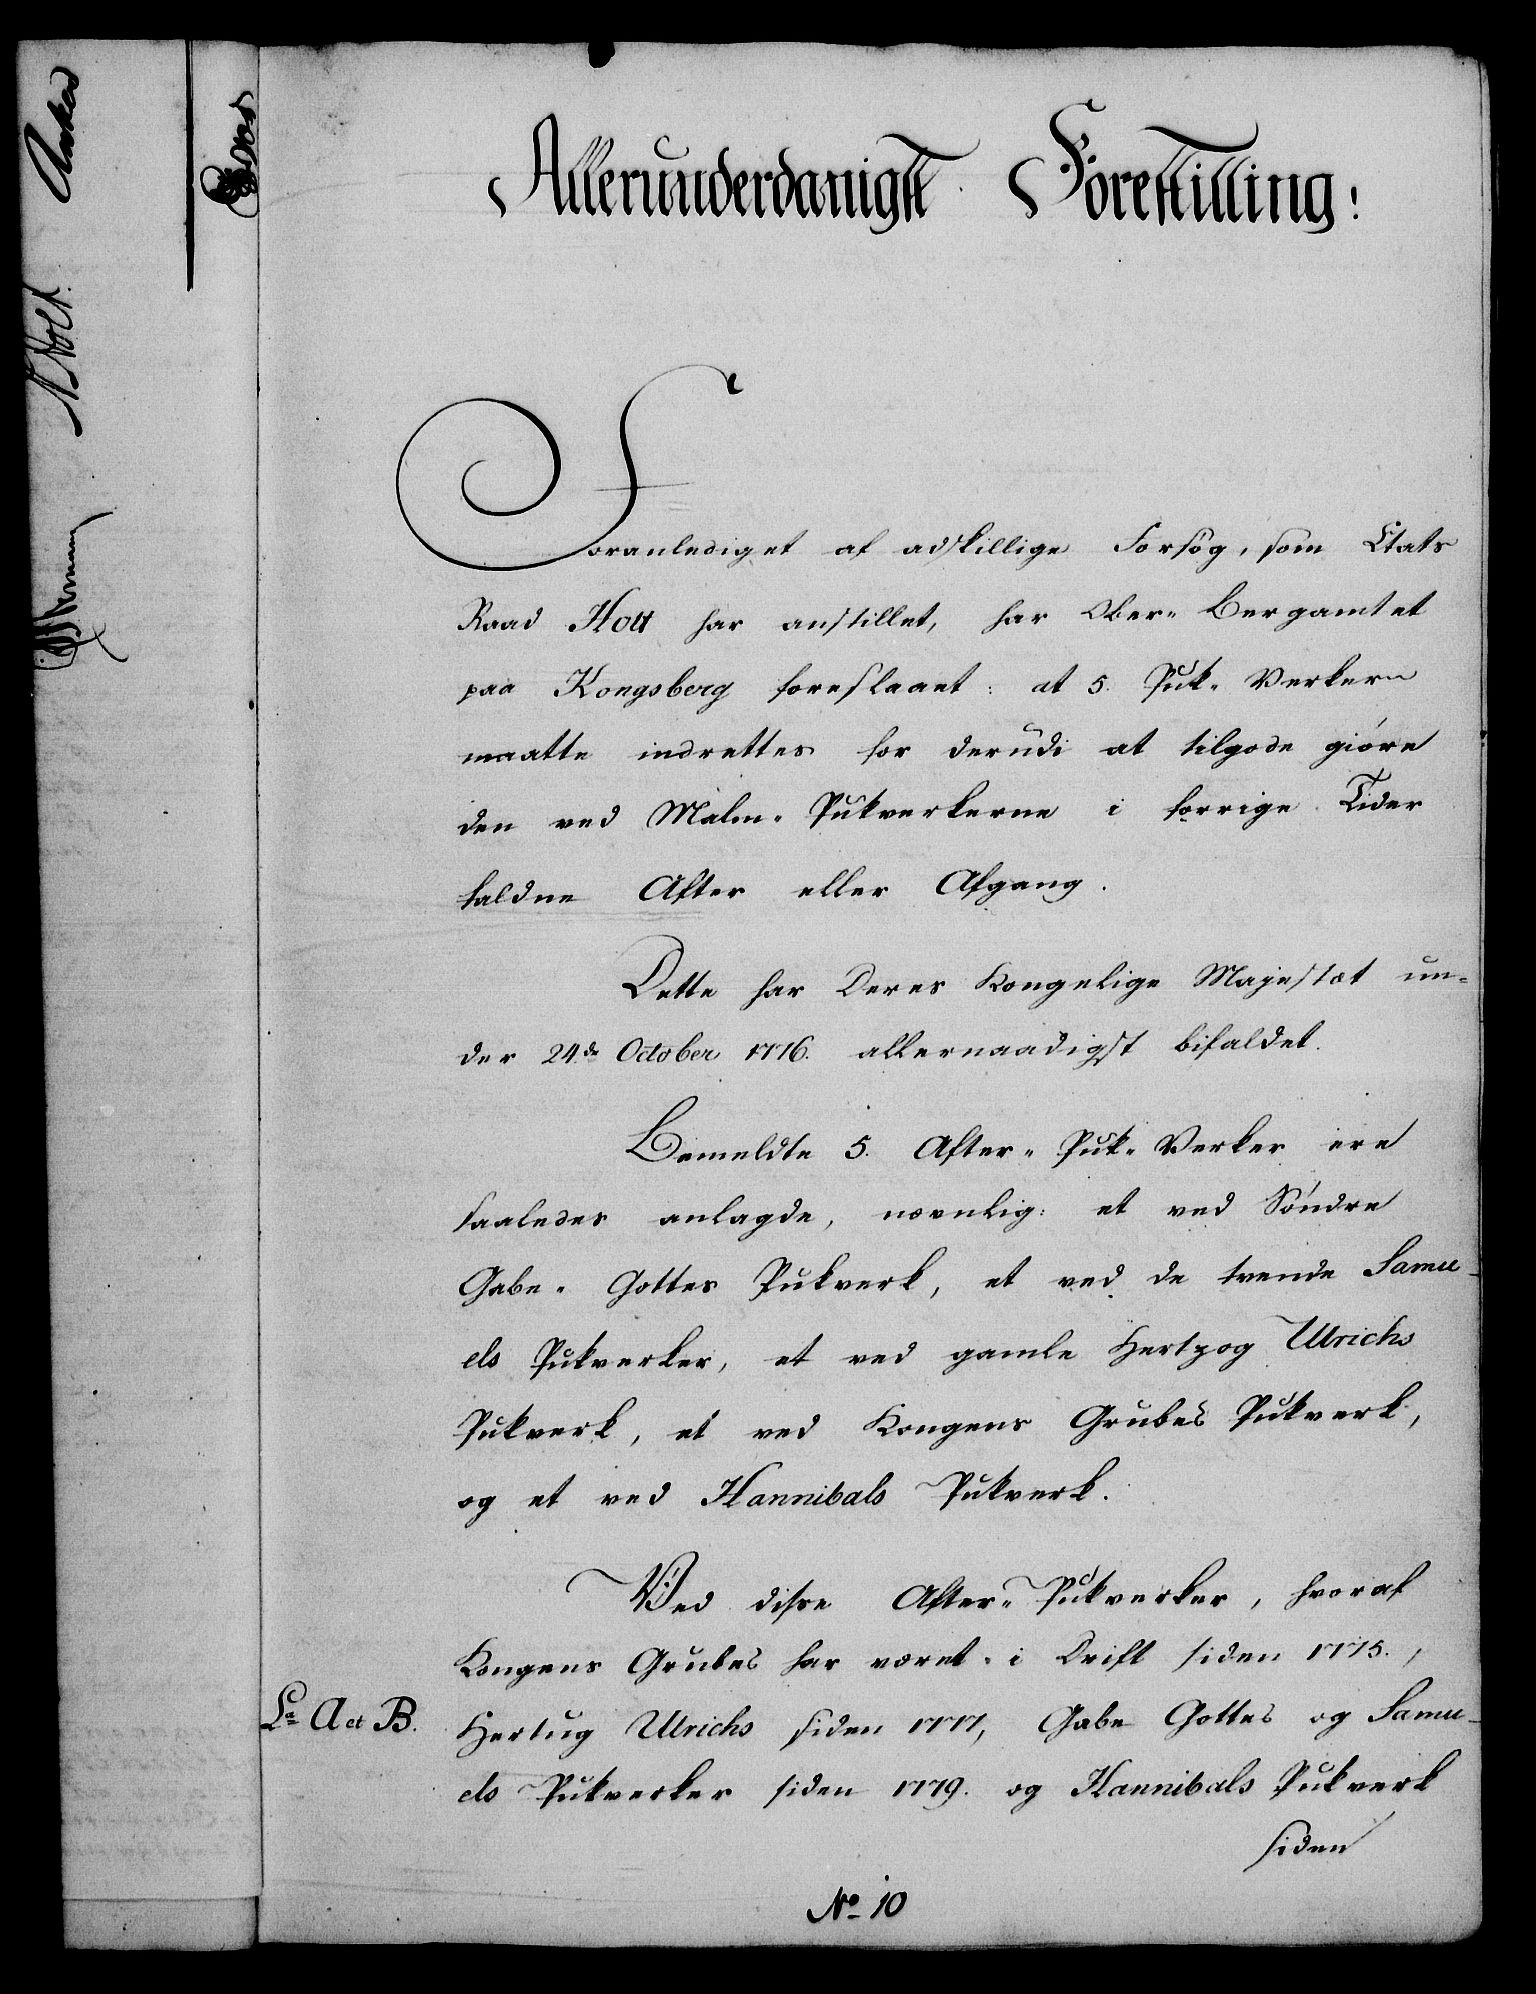 Allerunderdanigst Forestilling:
Foranlediget af adskillige Forsøg, som Etats
Raad Holt har anstillet, har Ober-Bergamtet
paa Kongsberg foreslaaet: at 5. Puk-Verker
maatte indrettes for derudi at tilgode giøre
den ved Malm-Pukverkerne i forrige Tider
faldne After eller Afgang.
Dette har Deres Kongelige Majestæt un-
der 24de October 1776. allernaadigst bifaldet.
Bemeldte 5. After-Puk-Verker ere
saaledes anlagde, nævnlig: et ved Söndre
Gabe-Gottes Pukverk, et ved de trende Samu-
els Pukverker, et ved gamle Hertzog Ulrichs
Pukverk, et ved Kongens Grubes Pukverk,
og et ved Hannibals Pukverk.
Ved disse After-Pukverker, hvoraf
Kongens Grubes har været i Drift siden 1775.,
La A et B.
Hertug Ulrichs siden 1777, Gabe Gottes og Samu-
els Pukverker siden 1779. og Hannibals Pukverk
siden
No 10
Anker
Holt